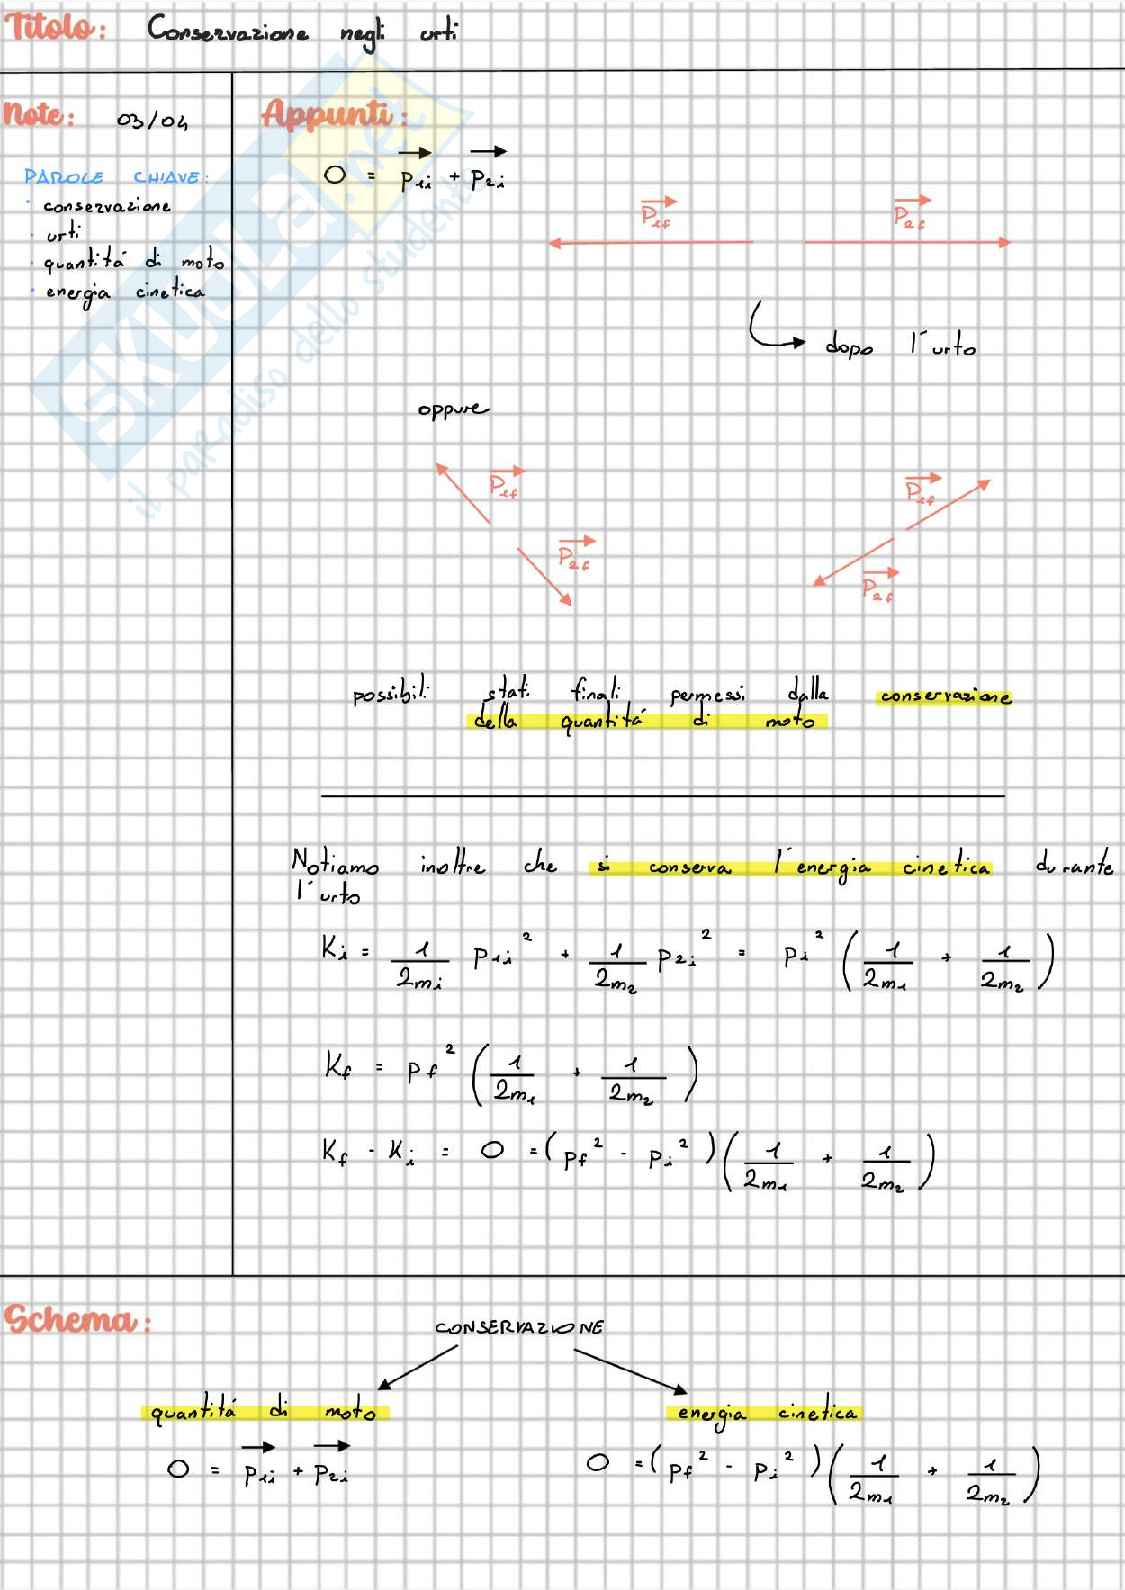 Titolo: Conservazione negli urti
Note: 03/04
PAROLE CHIAVE:
· conservazione
· urti
· quantitá di moto
· energia cinetica
Appunti:
0 = p⃗₁ᵢ + p⃗₂ᵢ
P⃗₁f P⃗₂f
dopo l'urto
oppure
P⃗₁f
P⃗₂f
P⃗₁f
P⃗₂f
possibili stati finali permessi dalla conservazione
della quantitá di moto
Notiamo inoltre che si conserva l'energia cinetica durante
l'urto
Kᵢ = 1/2mᵢ p₁ᵢ² + 1/2m₂ p₂ᵢ² = pᵢ² (1/2m₁ + 1/2m₂)
Kf = pf² (1/2m₁ + 1/2m₂)
Kf - Kᵢ = 0 = (pf² - pᵢ²)(1/2m₁ + 1/2m₂)
Schema:
CONSERVAZIONE
quantitá di moto energia cinetica
0 = p⃗₁ᵢ + p⃗₂ᵢ 0 = (pf² - pᵢ²)(1/2m₁ + 1/2m₂)
SKUOLA.net
il paradiso dello studente